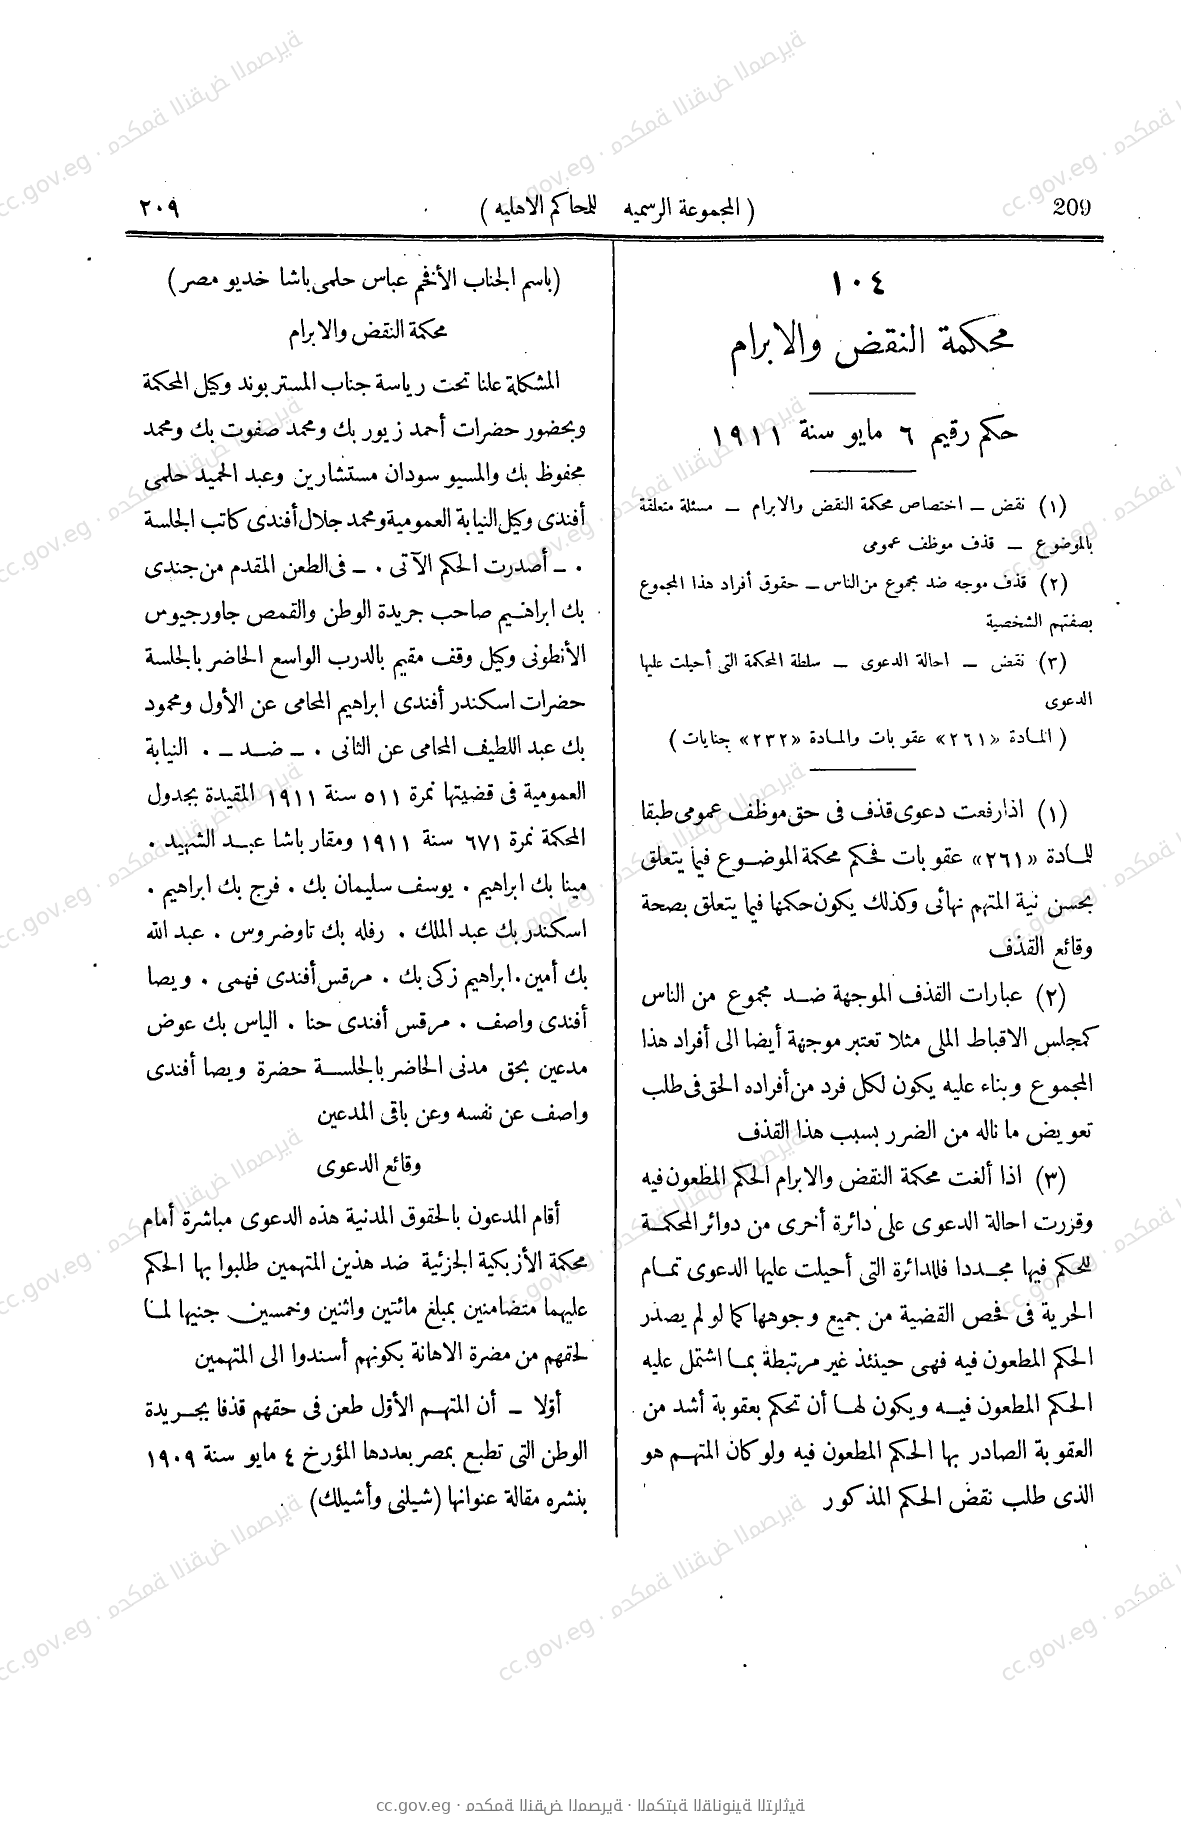 209
( المجموعة الرسميه للمحاكم الاهليه )
٢٠٩
١٠٤
محكمة النقض والابرام
حكم رقيم ٦ مايو سنة ١٩١١
(١) نقض ــ اختصاص محكمة النقض والابرام ــ مسئلة متعلقة
بالموضوع ــ قذف موظف عمومى
(٢) قذف موجه ضد مجموع من الناس ــ حقوق أفراد هذا المجموع
بصفتهم الشخصية
(٣) نقض ــ احالة الدعوى ــ سلطة المحكمة التى أحيلت عليها
الدعوى
( المادة «٢٦١» عقوبات والمادة «٢٣٢» جنايات )
(١) اذا رفعت دعوى قذف فى حق موظف عمومى طبقا
للمادة «٢٦١» عقوبات فحكم محكمة الموضوع فيما يتعلق
بحسن نية المتهم نهائى وكذلك يكون حكمها فيما يتعلق بصحة
وقائع القذف
(٢) عبارات القذف الموجهة ضد مجموع من الناس
كمجلس الاقباط الملى مثلا تعتبر موجهة أيضا الى أفراد هذا
المجموع وبناء عليه يكون لكل فرد من أفراده الحق فى طلب
تعويض ما ناله من الضرر بسبب هذا القذف
(٣) اذا ألغت محكمة النقض والابرام الحكم المطعون فيه
وقررت احالة الدعوى على دائرة أخرى من دوائر المحكمة
للحكم فيها مجددا فللدائرة التى أحيلت عليها الدعوى تمام
الحرية فى فحص القضية من جميع وجوهها كما لو لم يصدر
الحكم المطعون فيه فهى حينئذ غير مرتبطة بما اشتمل عليه
الحكم المطعون فيه ويكون لها أن تحكم بعقوبة أشد من
العقوبة الصادر بها الحكم المطعون فيه ولو كان المتهم هو
الذى طلب نقض الحكم المذكور
(باسم الجناب الأفخم عباس حلمى باشا خديو مصر)
محكمة النقض والابرام
المشكلة علنا تحت رياسة جناب المستر بوند وكيل المحكمة
وبحضور حضرات أحمد زيور بك ومحمد صفوت بك ومحمد
محفوظ بك والمسيو سودان مستشارين وعبد الحميد حلمى
أفندى وكيل النيابة العمومية ومحمد جلال أفندى كاتب الجلسة
. ــ أصدرت الحكم الآتى . ــ فى الطعن المقدم من جندى
بك ابراهيم صاحب جريدة الوطن والقمص جاورجيوس
الأنطونى وكيل وقف مقيم بالدرب الواسع الحاضر بالجلسة
حضرات اسكندر أفندى ابراهيم المحامى عن الأول ومحمود
بك عبد اللطيف المحامى عن الثانى . ــ ضد ــ . النيابة
العمومية فى قضيتها نمرة ٥١١ سنة ١٩١١ المقيدة بجدول
المحكمة نمرة ٦٧١ سنة ١٩١١ ومقار باشا عبد الشهيد .
مينا بك ابراهيم . يوسف سليمان بك . فرج بك ابراهيم .
اسكندر بك عبد الملك . رفله بك تاوضروس . عبد الله
بك أمين . ابراهيم زكى بك . مرقس أفندى فهمى . ويصا
أفندى واصف . مرقس أفندى حنا . الياس بك عوض
مدعين بحق مدنى الحاضر بالجلسة حضرة ويصا أفندى
واصف عن نفسه وعن باقى المدعين
وقائع الدعوى
أقام المدعون بالحقوق المدنية هذه الدعوى مباشرة أمام
محكمة الأزبكية الجزئية ضد هذين المتهمين طلبوا بها الحكم
عليهما متضامنين بمبلغ مائتين واثنين وخمسين جنيها لما
لحقهم من مضرة الاهانة بكونهم أسندوا الى المتهمين
أولا ــ أن المتهم الأول طعن فى حقهم قذفا بجريدة
الوطن التى تطبع بمصر بعددها المؤرخ ٤ مايو سنة ١٩٠٩
بنشره مقالة عنوانها (شيلنى وأشيلك)
cc.gov.eg · محكمة النقض المصرية · المكتبة القانونية التراثية